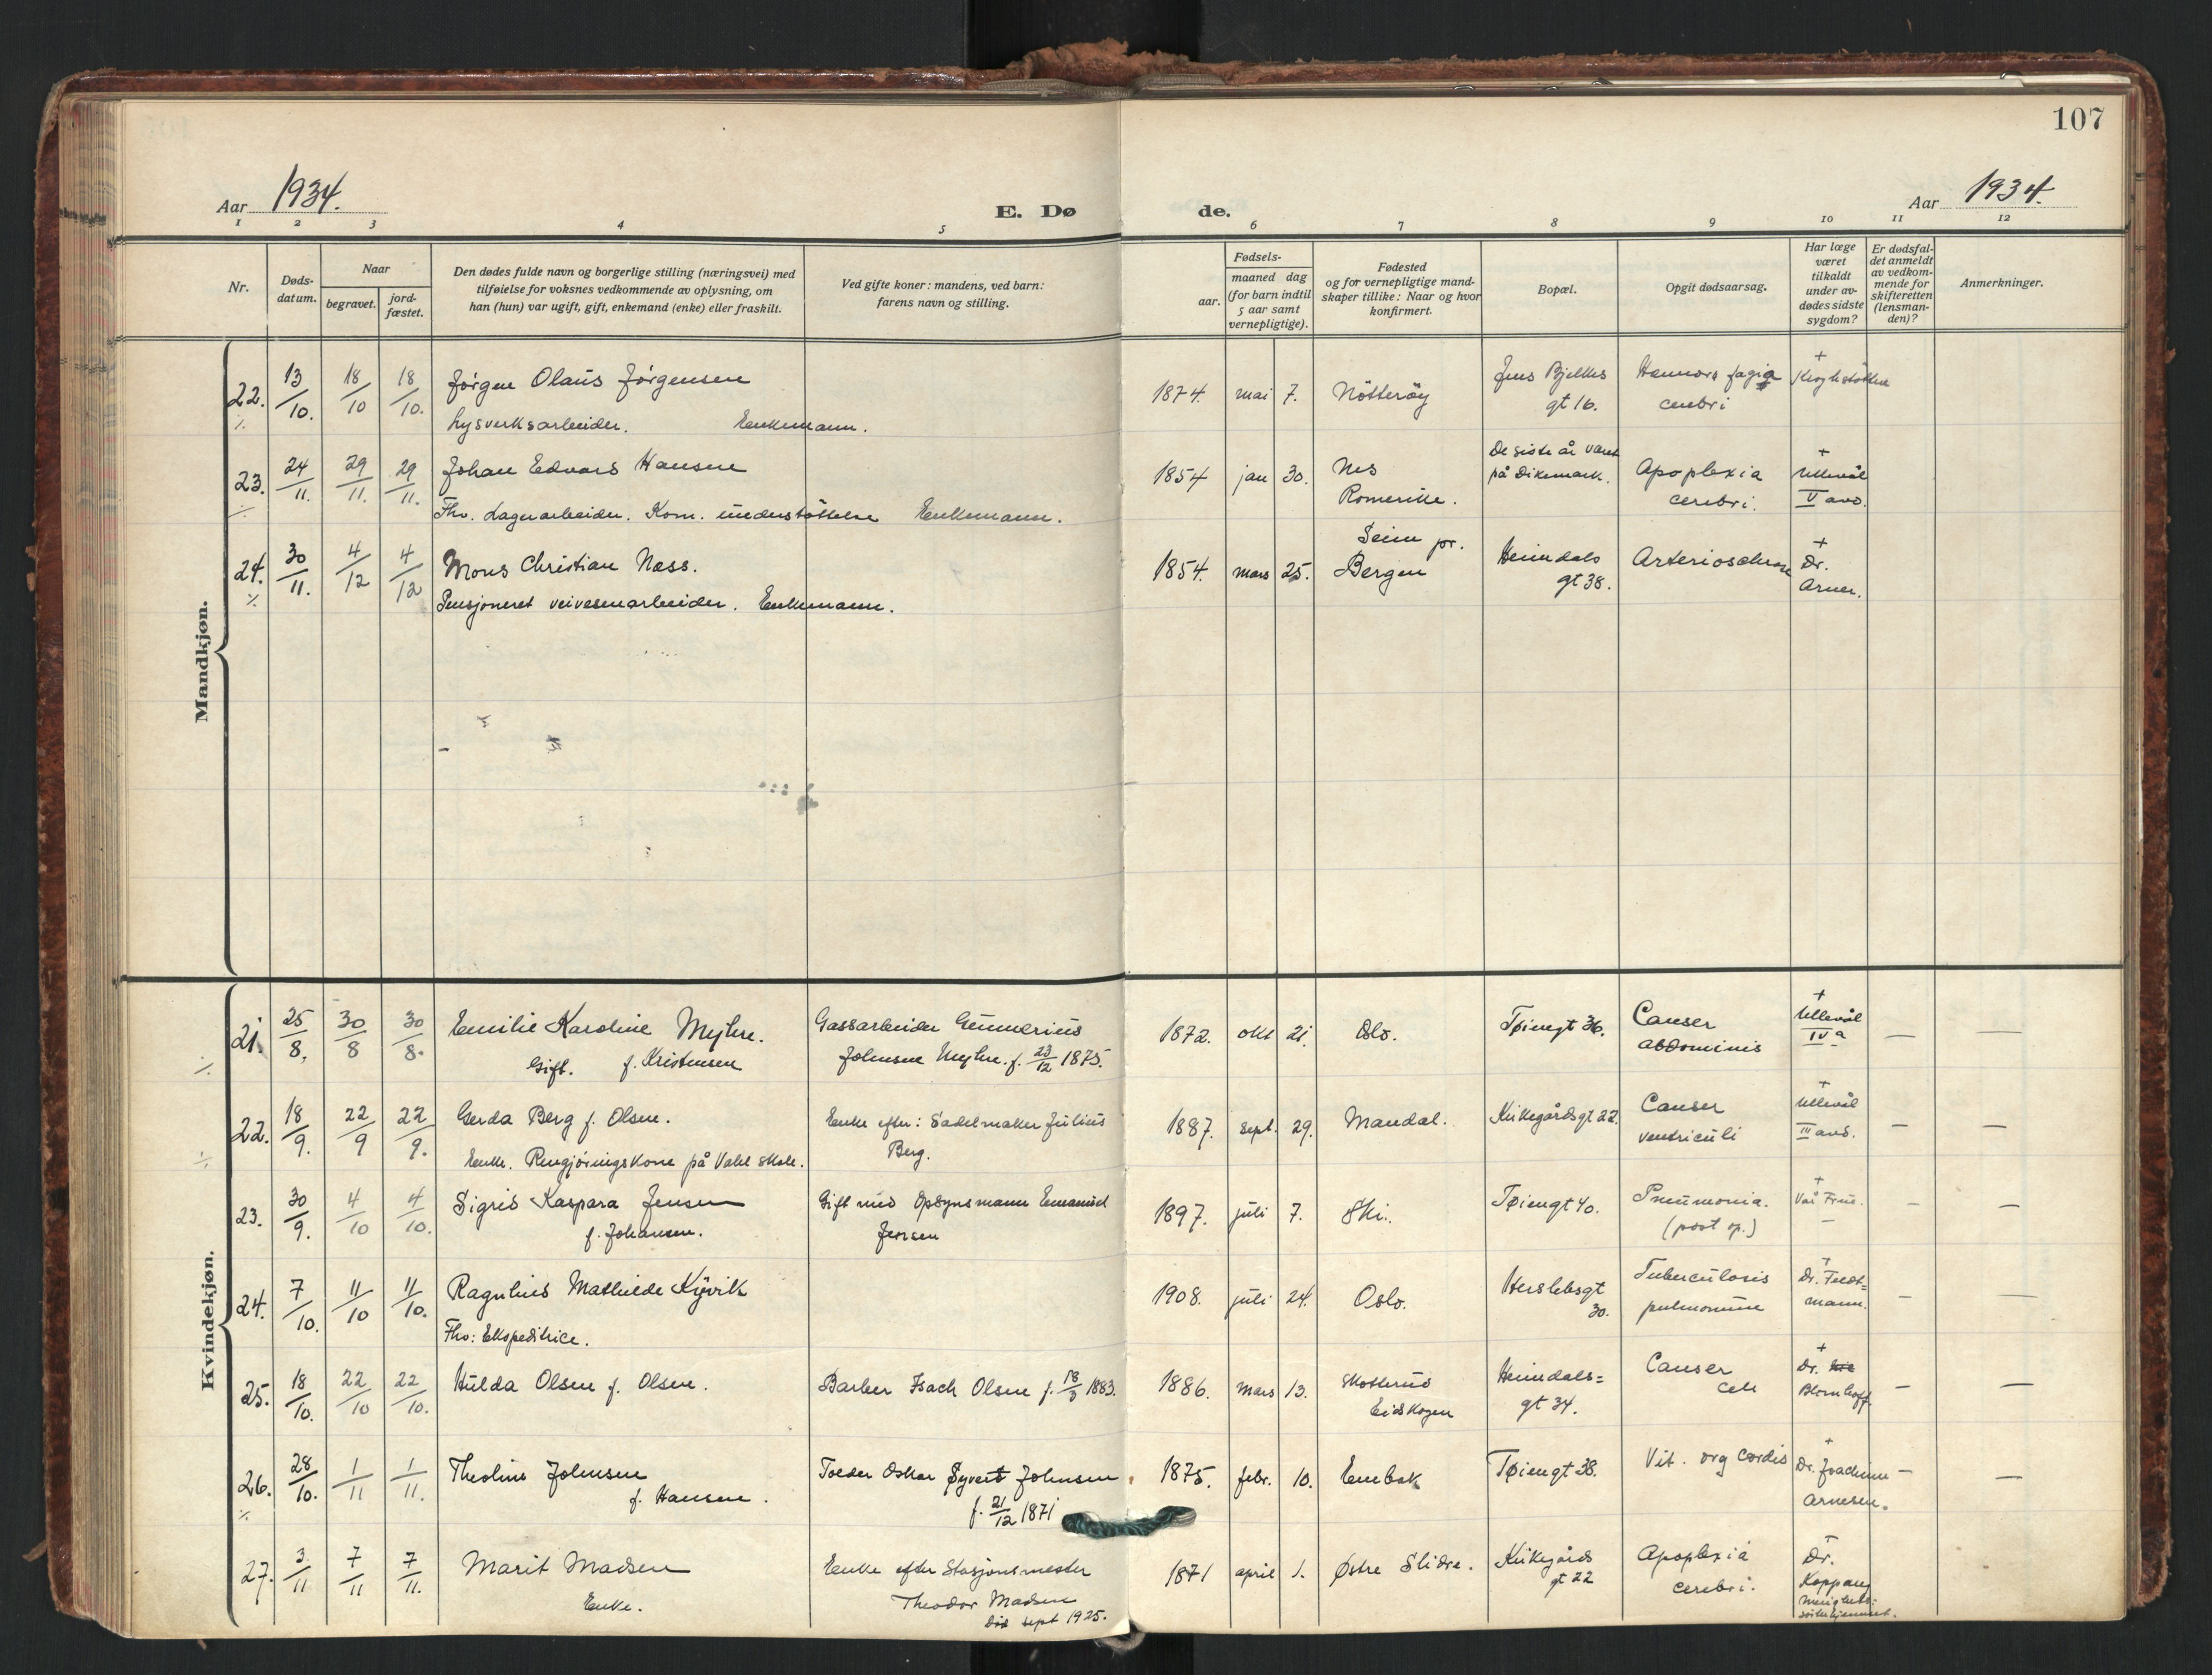 107
Aar 1934.
E. Dø
de.
Aar 1934.
1 2 3 4 5 6 7 8 9 10 11 12
Nr.
Døds-
datum.
Naar
begravet.
jord-
fæstet.
Den dødes fulde navn og borgerlige stilling (næringsvei) med
tilføielse for voksnes vedkommende av oplysning, om
han (hun) var ugift, gift, enkemand (enke) eller fraskilt.
Ved gifte koner: mandens, ved barn:
farens navn og stilling.
Fødsels-
aar.
maaned dag
(for barn indtil
5 aar samt
vernepligtige).
Fødested
og for vernepligtige mand-
skaper tillike: Naar og hvor
konfirmert.
Bopæl.
Opgit dødsaarsag.
Har læge
været
tilkaldt
under av-
dødes sidste
sygdom?
Er dødsfal-
det anmeldt
av vedkom-
mende for
skifteretten
(lensman-
den)?
Anmerkninger.
Mandkjøn.
22. 13/10. 18/10 18/10. Jörgen Olaus Jörgensen 1874. mai 7. Nötteröy Jens Bjelkes gt 16. cerebri +
Lysverksarbeider. Enkemann.
23. 24/11. 29/11. 29/11. Johan Edvard Hansen 1854 jan 30. Nes Romerike. De siste år været på Dikemark. Apoplexia cerebri. + Ullevål V avd.
Fhv. Lagerarbeider. Kom. understöttelse Enkemann.
24. 30/11. 4/12 4/12 Mons Christian Næss. 1854. mars 25. Seim pr. Bergen Heimdals gt 38. + Dr. Arner.
Pensjoneret veivesenarbeider. Enkemann.
Kvindekjøn.
21. 25/8. 30/8 30/8. Emilie Karoline Myhre. Gassarbeider Gunnerius 1872. okt 21. Oslo. Tøiengt 36. Canser abdominis + Ullevål IV a — —
Gift. f. Kristensen Johnsen Myhre. f. 23/12 1875.
22. 18/9. 22/9 22/9. Gerda Berg f. Olsen. Enke efter: Sadelmaker Julius Berg. 1887. sept. 29. Mandal. Kirkegårdsgt 22. Canser ventriculi + Ullevål III avd. — —
Enke. Rengjöringskone på Vahl skole.
23. 30/9. 4/10 4/10. Sigrid Kaspara Jensen Gift med Opsynsmann Emanuel Jensen 1897. juli 7. Ski. Tøiengt 40. Pneumonia. (post op.) + Vår Frue. — —
f. Johansen.
24. 7/10. 11/10 11/10. Ragnhild Mathilde Kÿvik 1908. juli 24. Oslo. Herslebsgt 30. Tuberculosis pulmonum + — —
Fhv: Ekspeditrice.
25. 18/10. 22/10 22/10. Hulda Olsen f. Olsen. Barber Isach Olsen f. 1883. 1886. mars 13. Skotterud Eidskogen Heimdals= gt 34. Canser + Dr. Blomhoff. — —
26. 28/10. 1/11 1/11. Theoline Johnsen Oskar Syvert Johnsen 1875. febr. 10. Enebak Tøiengt 38. Vit. org cordis + Dr. Joachim Arnesen. — —
f. Hansen. f. 21/12 1871
27. 3/11 7/11 7/11. Marit Madsen Enke efter Stasjonsmester 1871 april 1. Østre Slidre. Kirkegårds gt 22 Apoplexia cerebri. Dr. Koppang
Enke. Theodor Madsen
död sept 1925.